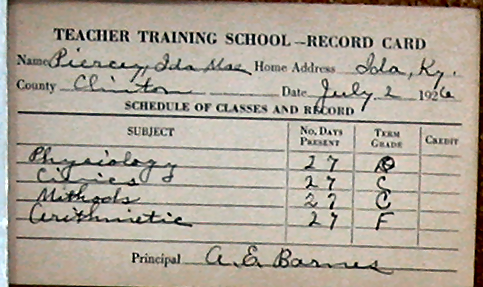 TEACHER TRAINING SCHOOL—RECORD CARD
Name Piercey, Ida Mae Home Address Ida, Ky.
County Clinton Date July 2 1926
SCHEDULE OF CLASSES AND RECORD
SUBJECT NO. DAYS PRESENT TERM GRADE CREDIT
Physiology 27 D
Civics 27 C
Methods 27 C
Arithmetic 27 F
Principal A. E. Barnes